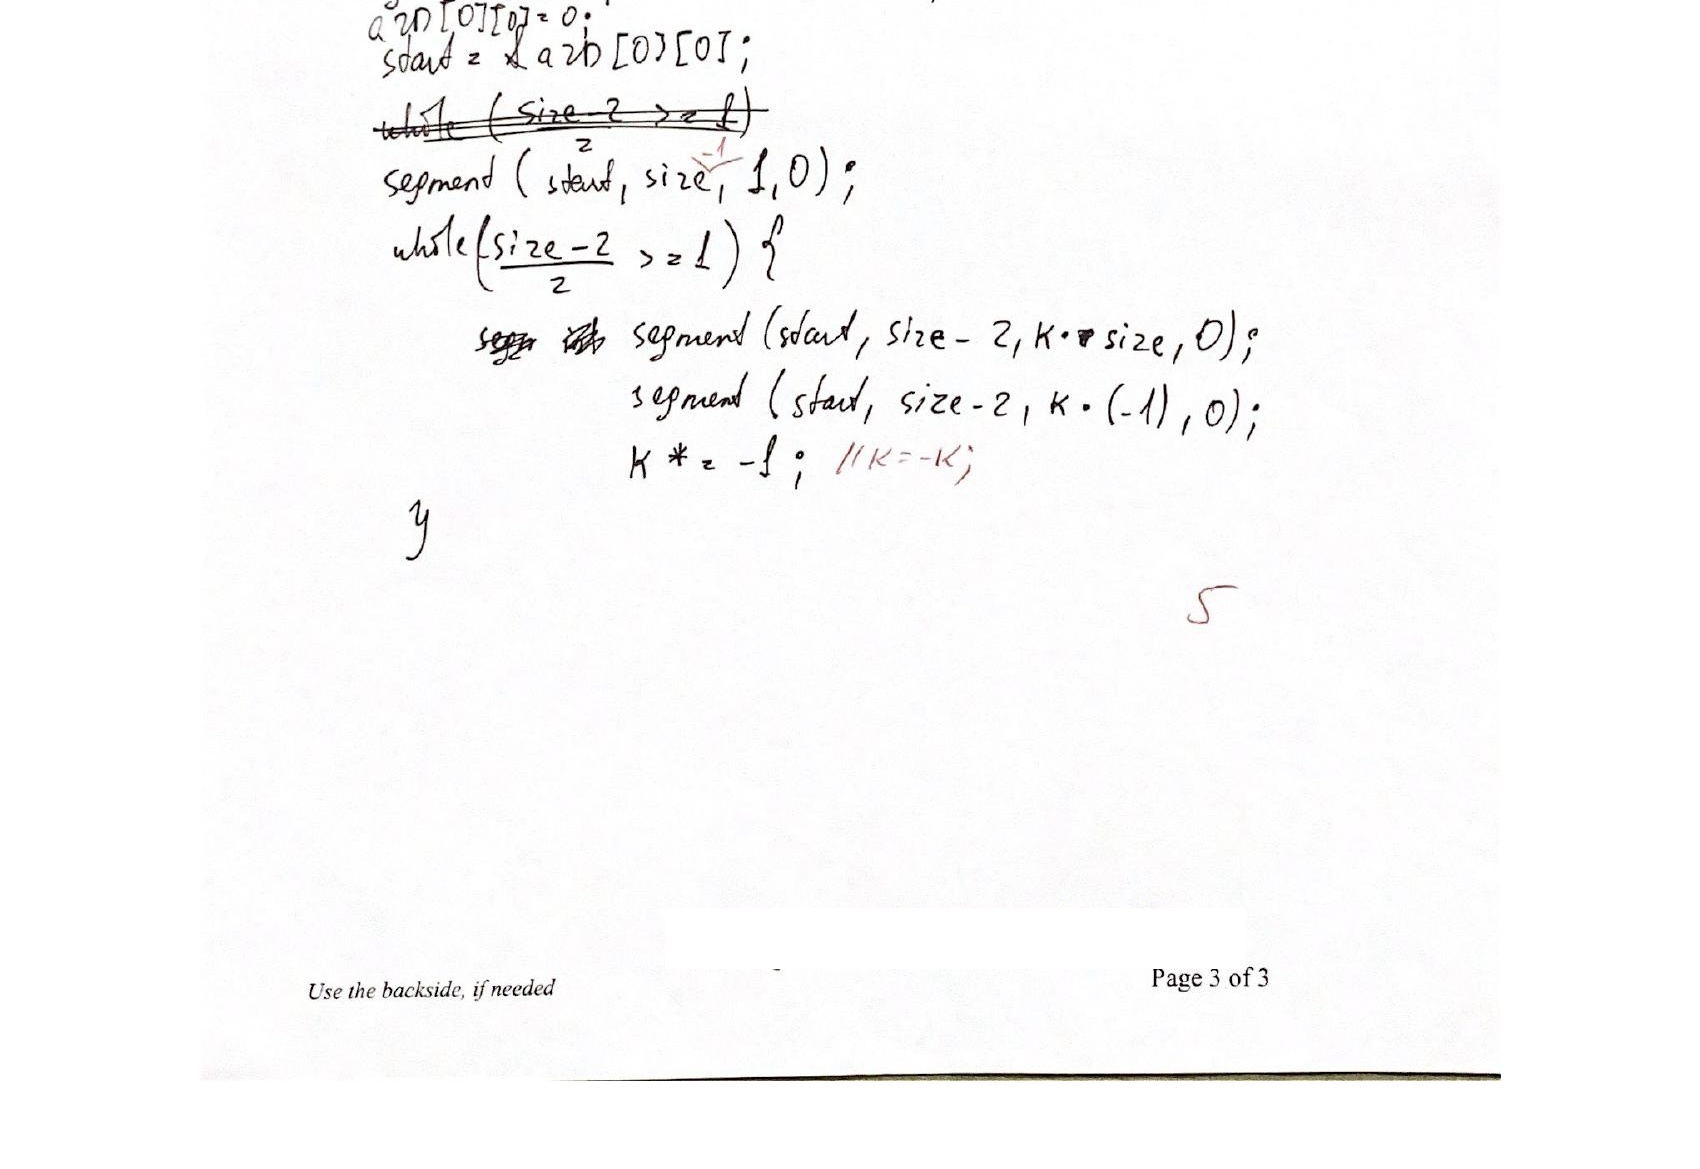 a2D[0][0] = 0;
start = &a2D[0][0];
while (size-2/2 >= 1)
segment (start, size, 1, 0);
-1
while (size-2/2 >= 1) {
segment (start, size - 2, K · size, 0);
segment (start, size - 2, K · (-1), 0);
K *= -1; // K = -K;
}
5
Use the backside, if needed
Page 3 of 3